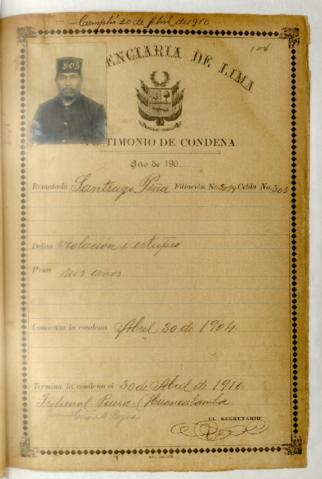 Cumplió 30 de Abril de 1910
106
ENCIARIA DE LIMA
303
TESTIMONIO DE CONDENA
Año de 190
Rematado Santiago Peña Filiación No. 2079 Celda No. 303
Delito violación e estupro
Pena seis años
Comienza la condena Abril 30 de 1904
Termina la condena el 30 de Abril de 1910
Tribunal Piura y Huancabamba
EL SECRETARIO